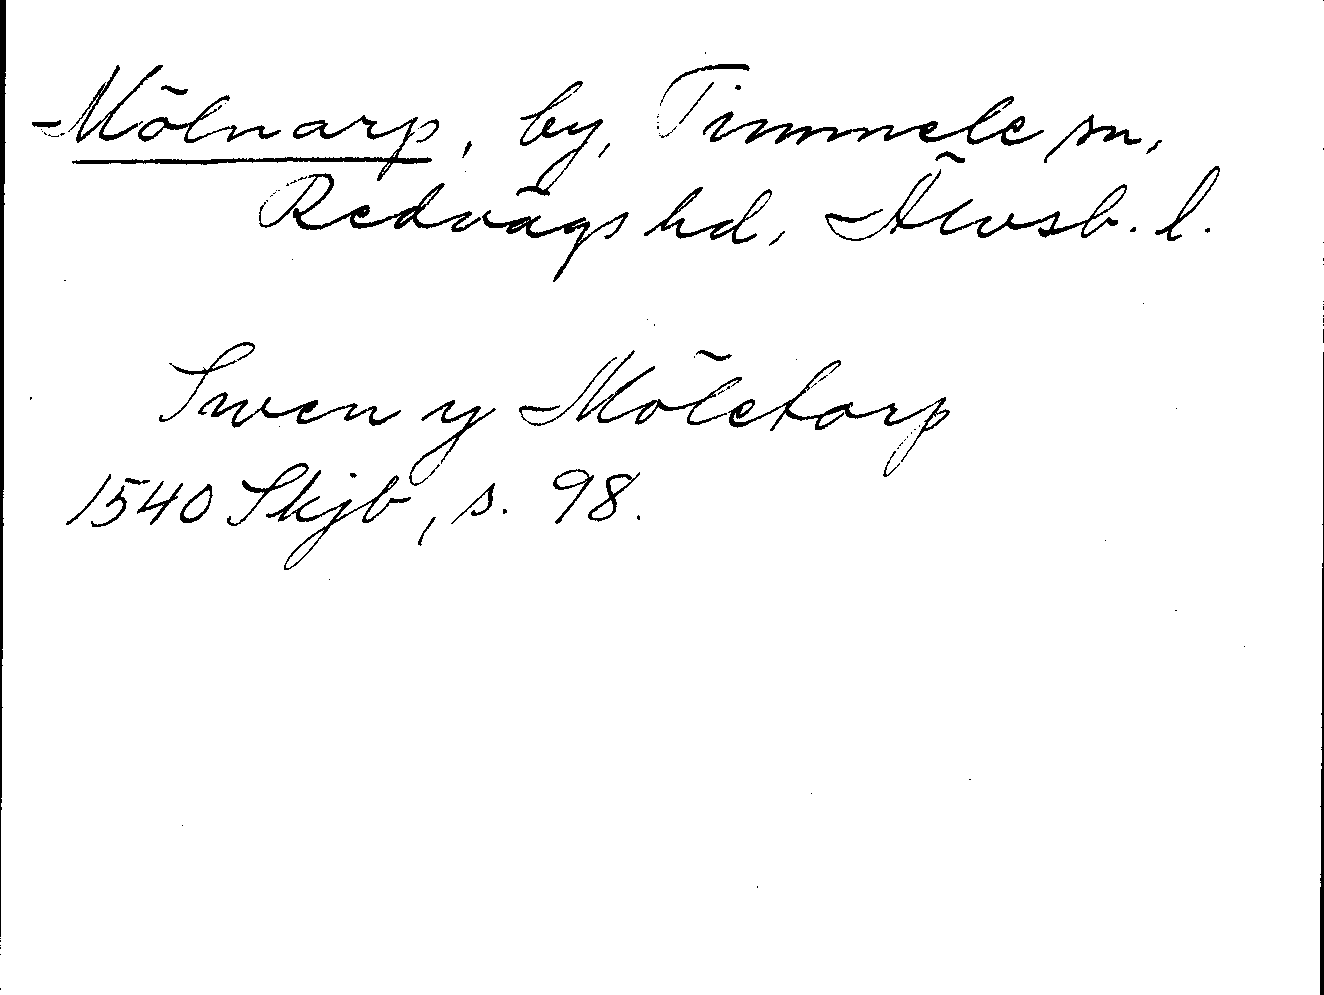 Mölnarp, by, Timmele sn,
Redvägs hd, Älvsb. l.
Swen y Möletorp
1540 Skjb, s. 98.